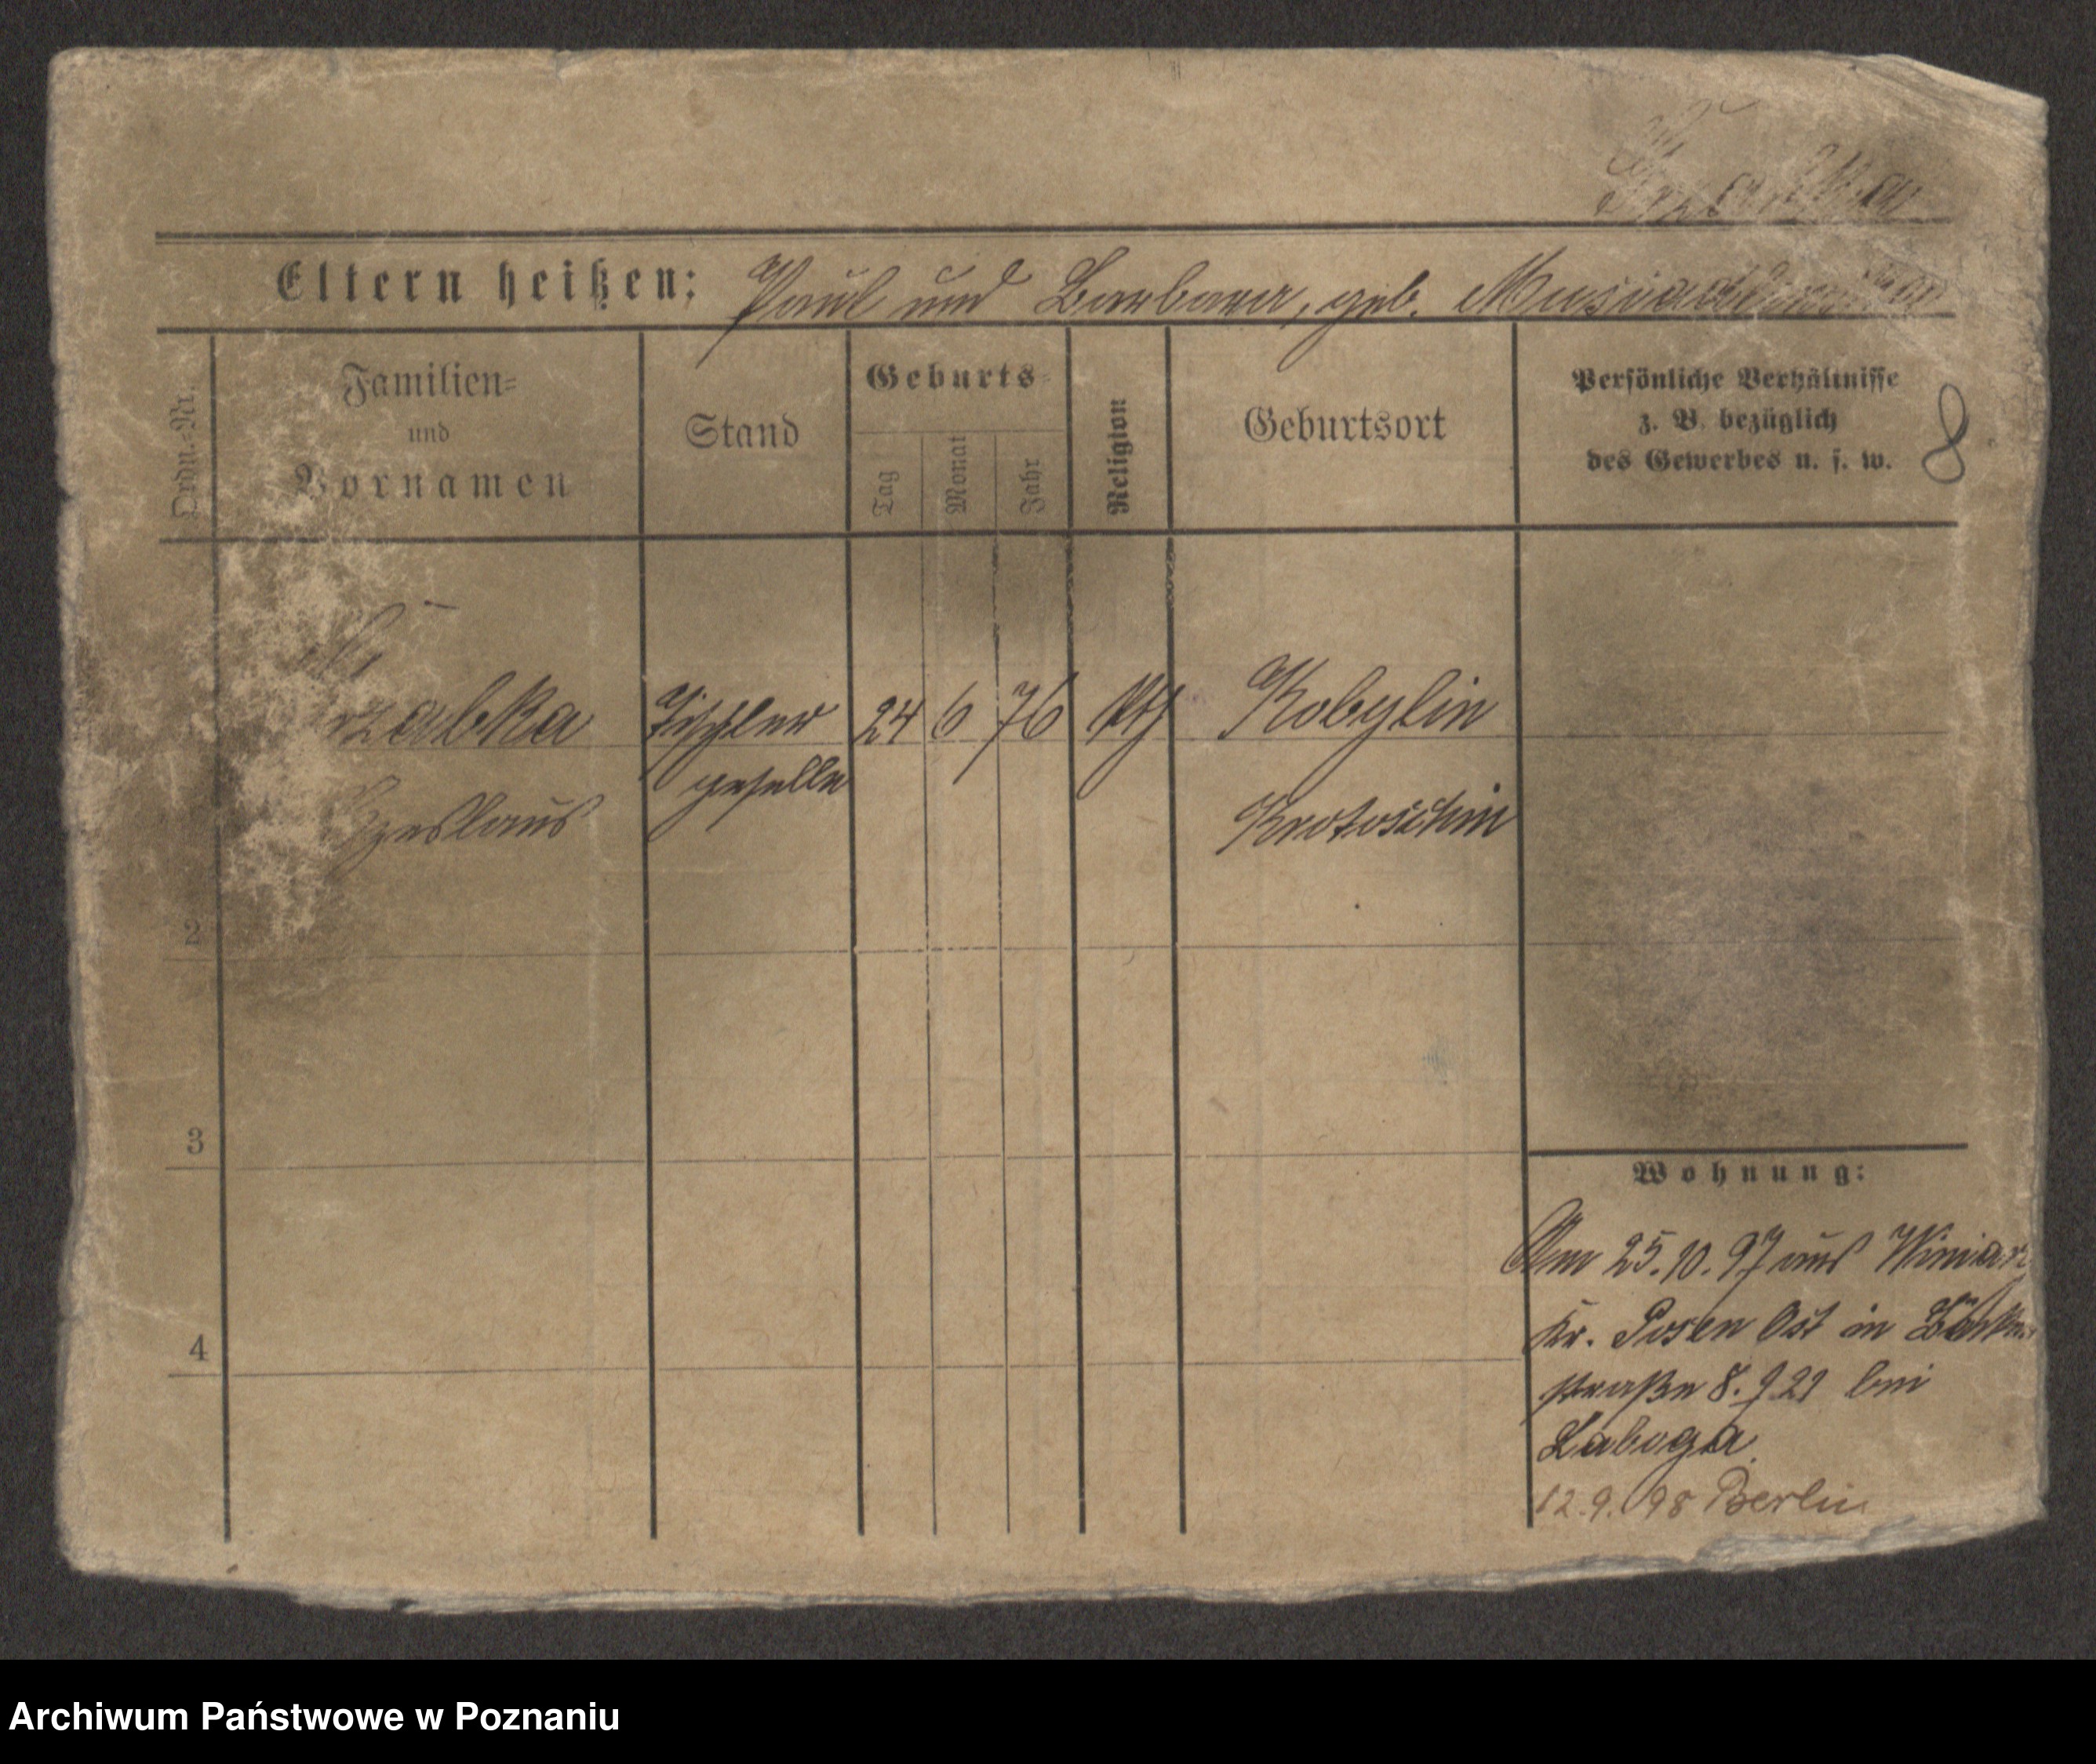 Eltern heißen: Paul und Barbara, geb.
Ordn.-Nr.
Familien-
und
Vornamen
Stand
Geburts-
Tag
Monat
Jahr
Religion
Geburtsort
Persönliche Verhältnisse
z. B. bezüglich
des Gewerbes u. s. w.
8
Tischler 24 6 76 Kth Kobylin
geselle
Krotoschin
2
3
4
Wohnung:
Am 25.10.97 aus
Kr. Posen Ost in
straße 8. bei
Laboga
12.9.98 Berlin
Archiwum Państwowe w Poznaniu